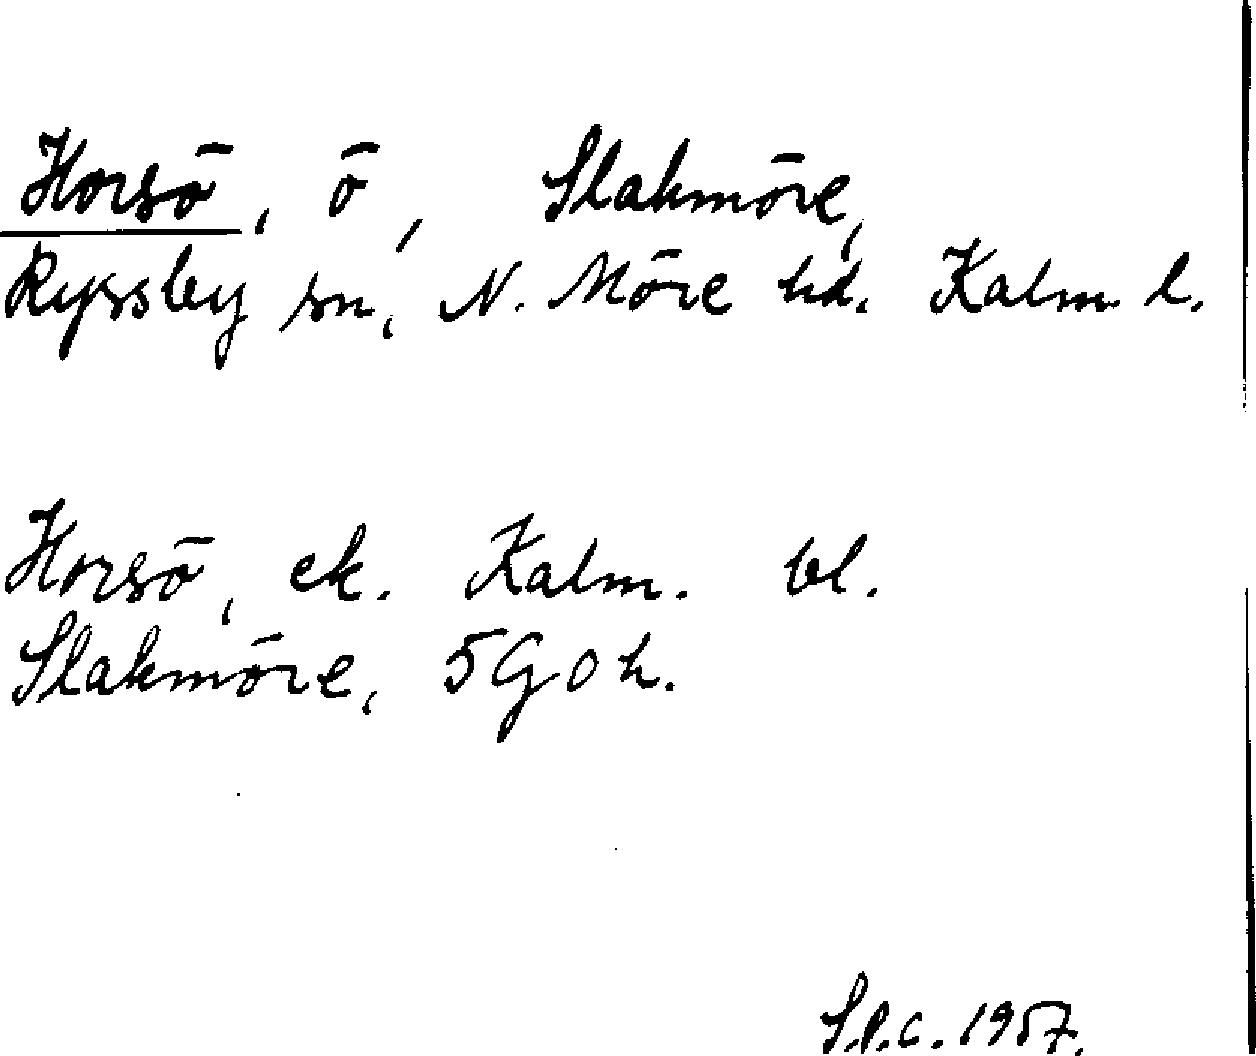 Horsö, ö, Slakmöre,
Ryssby sn, N. Möre hd. Kalm l.
Horsö, ek. Kalm. bl.
Slakmöre, 5G0h.
S.P.C. 1957.